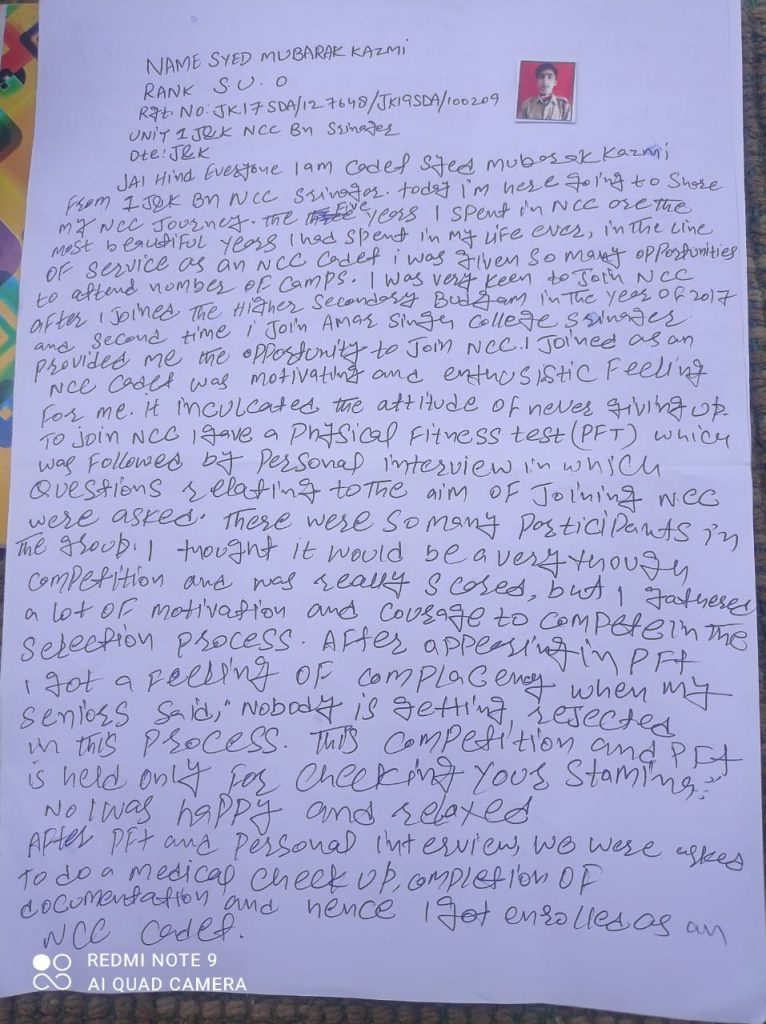 NAME SYED MUBARAK KAZMI
RANK S.U.O
Rgt. No: JK17SDA/127648/JK19SDA/100209
UNIT 1 J&K NCC Bn Srinager
Dte: J&K
JAI Hind Everyone I am Cadet Syed Mubarak Kazmi
From 1 J&K Bn NCC Srinagar. today I'm here going to Share
my NCC Journey. the Five years I spent in NCC are the
most beautiful years I had spent in my life ever, in the line
OF service as an NCC Cadet i was given so many opportunities
to attend number of camps. I was very keen to Join NCC
after I joined the Higher Secondary Budgam in the year of 2017
and second time i Join Amar Singh College Srinager
provided me the opportunity to Join NCC. I Joined as an
NCC Cadet was motivating and enthusistic Feeling
For me. it inculcated the attitude of never giving up.
To join NCC I gave a Physical Fitness test (PFT) which
was Followed by personal interview in which
Questions relating to the aim of Joining NCC
were asked. There were so many Participants in
the group. I thought it would be a very though
competition and was really scared, but I gathered
a lot of motivation and courage to compete in the
Selection process. After appearing in PFT
I got a Feeling of complacency when my
seniors said, "Nobody is getting rejected
in this process. This competition and PFT
is held only for checking your stamina."
No I was happy and relaxed
After PFT and personal interview, we were asked
to do a medical check up, completion OF
documentation and hence I got enrolled as an
NCC Cadet.
REDMI NOTE 9
AI QUAD CAMERA